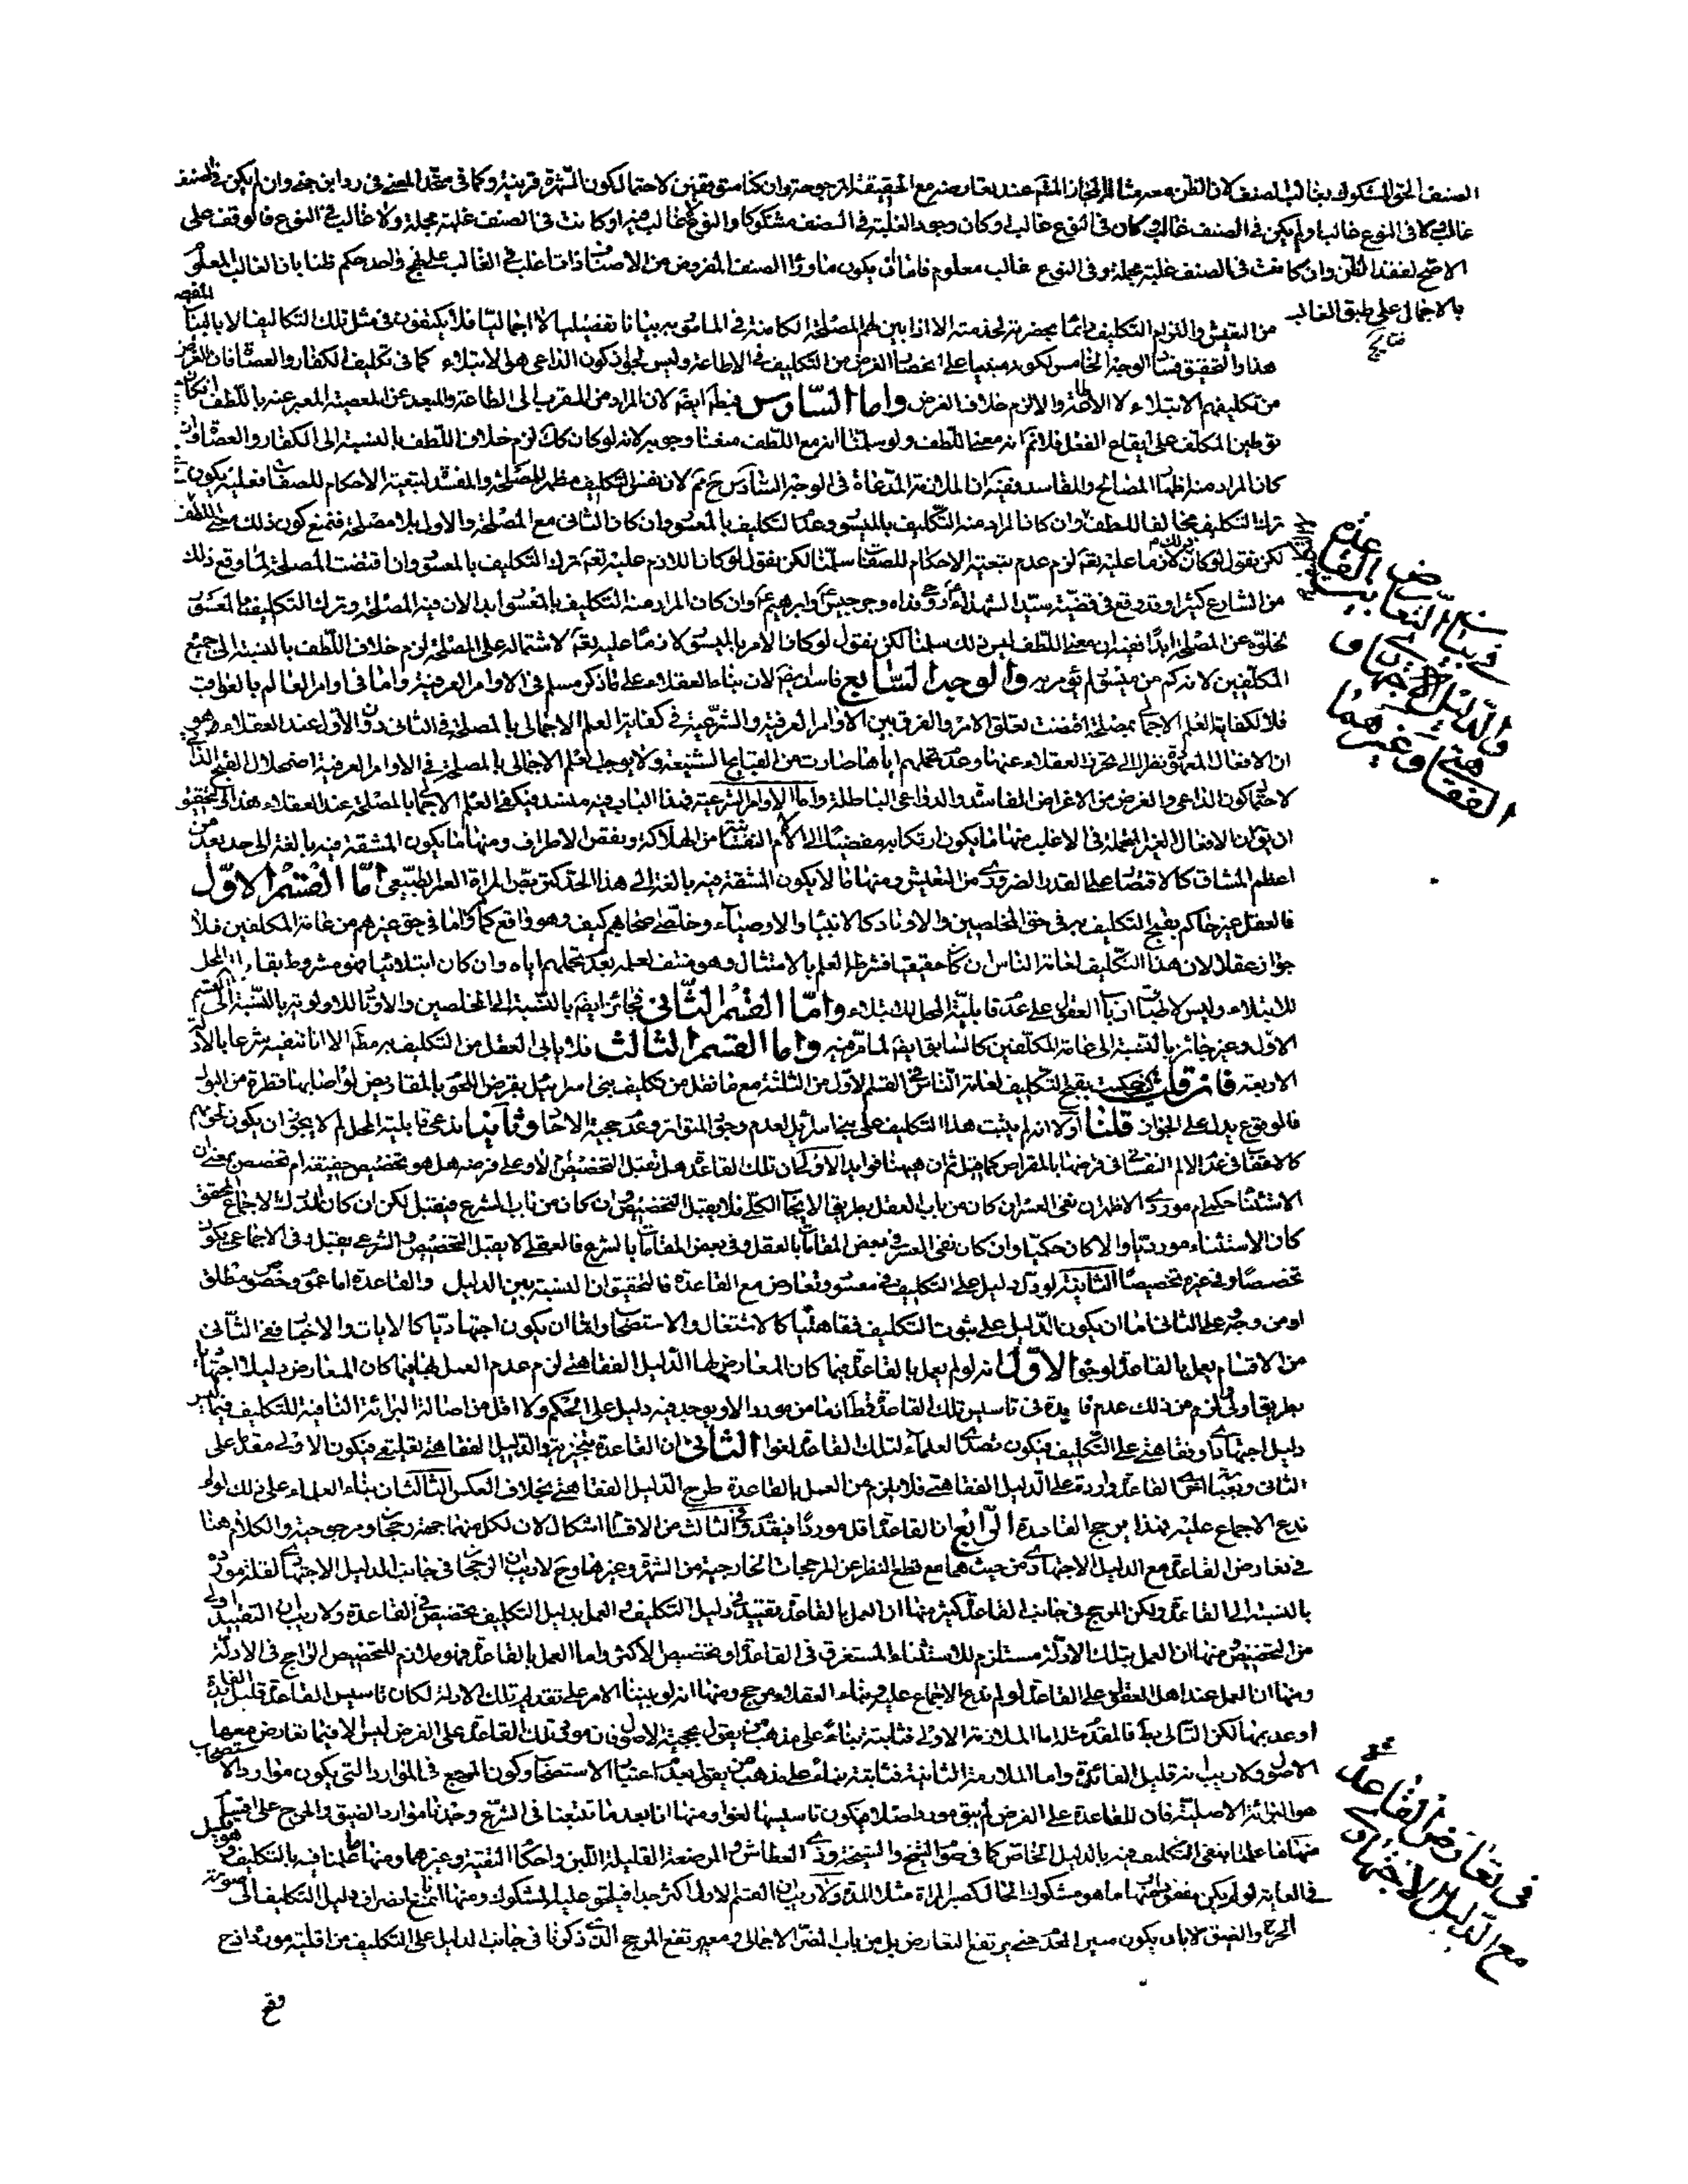 الصنف الحق المشكوك بغالب الصنف لان الظن معه
غالب لا فى النوع غالبا ولم يكن فى الصنف غالب وكان فى النوع غالب او كان وجود الغلبة فى الصنف مشكوكا والنوع غالب فيه او كانت فى الصنف غلبة مجملة ولا غالب فى النوع فالوقف على
الاصح لفقد الظن وان كانت فى الصنف غلبة مجملة وفى النوع غالب معلوم فاما ان يكون ما وراء الصنف المفروض من الاصناف ذات اغلب فى الغالب على نهج واحد حكم ظنا بان الغالب المعلوم
بالاجمال على طبق الغالب
نتايج
من التعيش والتزم التكليف دائما بحضرته لخدمته الا اذا بين لهم المصلحة الكامنة فى المامور به بيانا تفصيليا لا اجماليا فلا يكتفون فى مثل تلك التكاليف الا بالبيان
هذا والتحقيق فساد الوجه الخامس لكونه مبنيا على انحصار الغرض من التكليف فى الاطاعة وليس لجواز كون الداعى هو الابتلاء كما فى تكليف الكفار والعصاة فان الغرض
من تكليفهم الابتلاء لا الاطاعة والا لزم خلاف الغرض واما السادس فيظهر ايضا لان المراد من المقرب الى الطاعة والمبعد عن المعصية المعبر عنه باللطف
توطين المكلف على ايقاع الفعل فلا نم انه معنى اللطف ولو سلمنا انه مع اللطف منعنا وجوبه لانه لو كان كك لزم خلاف اللطف بالنسبة الى الكفار والعصاة وان
كان المراد منه اظهار المصالح والمفاسد ففيه ان الملازمة المدعاة فى الوجه السادس ح مم لان نفس التكليف مظهر للمصلحة والمفسدة لتبعية الاحكام للصفات فعليه يكون
ترك التكليف مخالفا للطف وان كان المراد منه التكليف بالميسور وعدم التكليف بالمعسور وان كان الثانى مع المصلحة والاول بلا مصلحة فنمنع كون ذلك معنى اللطف
لكن نقول لو كان ذلك لازما عليه تعم لزم عدم تبعية الاحكام للصفات سلمنا لكن نقول لو كان اللازم عليه تعم ترك التكليف بالمعسور وان اقتضت المصلحة لما وقع ذلك
من الشارع كثيرا وقد وقع فى قضية سيد الشهداء روحى فداه وجرجيس وابرهيم وان كان المراد منه التكليف بالمعسور ابدا لان فيه المصلحة وترك التكليف بالمعسور
لخلوه عن المصلحة ابدا ففيه ان معنى اللطف ليس ذلك سلمنا لكن نقول لو كان الامر بالميسور لازما عليه تعم لاشتماله على المصلحة لزم خلاف اللطف بالنسبة الى جميع
المكلفين لانه كم من ميسور لم يؤمر به والوجه السابع فاسد ايضم لان بناء العقلاء على ما ذكر مسلم فى الاوامر العرفية واما فى اوامر العالم بالعواقب
فلا لكفاية العلم الاجمالى بمصلحة اقتضت تعلق الامر والفرق بين الاوامر العرفية والشرعية فى كفاية العلم الاجمالى بالمصلحة فى الثانى دون الاول عند العقلاء هو
ان الافعال المعهودة نظرا الى تحرز العقلاء عنها وعدم تحملهم اياها صارت من القبايح الشنيعة ولا يوجب العلم الاجمالى بالمصلحة فى الاوامر العرفية اضمحلال القبح الذاتى
لاحتمال كون الداعى والغرض من الاغراض الفاسدة والدواعى الباطلة واما الاوامر الشرعية فهذا الباب فيه منسد فيكفى العلم الاجمالى بالمصلحة عند العقلاء هذا لكن التحقيق
ان يقال ان الافعال الغير المتحملة فى الاغلب منها ما يكون ارتكابه مفضيا الى الالام النفسانية من الهلاكة ونقص الاطراف ومنها ما يكون المشقة فيه بالغة الى حد يعد من
اعظم المشاق كالاقتصار على القدر الضرورى من التعيش ومنها ما لا يكون المشقة فيه بالغة الى هذا الحد كتربص المراة العمر الطبيعى اما القسم الاول
فالعقل غير حاكم بقبح التكليف به فى حق المخلصين والاوتاد كالانبياء والاوصياء وخلص اصحابهم كيف وهو واقع كما واما فى حق غيرهم من عامة المكلفين فلا
جواز عقلا لان هذا التكليف لعامة الناس ان كان حقيقيا فشرطه العلم بالامتثال وهو منتف لعلمه بعدم تحملهم اياه وان كان ابتلائيا فهو مشروط بقابلية المحل
للابتلاء وليس واما القسم الثانى فجائز ايضم بالنسبة الى المخلصين والاوتاد للاولوية بالنسبة الى القسم
الاول وغير جائز بالنسبة الى عامة المكلفين كالسابق ايضم لما مر فيه واما القسم الثالث فلا يابى العقل من التكليف به مطم الا انا ننفيه شرعا بالادلة
الاربعة فان قلت كيف حكمت بقبح التكليف لعامة الناس فى القسم الاول من الثلثة مع ما نقل من تكليف بنى اسرائيل بقرض اللحوم بالمقاريض لو اصابها قطرة من البول
فالوقوع يدل على الجواز قلنا اولا انه لم يثبت هذا التكليف على بنى اسرائيل لعدم وجود المتواتر وعدم حجية الاحاد وثانيا ندعى قابلية المحل لم لا يجوز ان يكون لحومهم
كالاعقاب فى عدم الالم النفسانى فى قرضها بالمقراض كما قيل ثم ان ههنا فوايد الاولى ان تلك القاعدة هل تقبل التخصيص ام لا وعلى فرضه هل هو تخصيص حقيقة ام تخصص بمعنى ان
الاستثناء حكمى ام موردى الاظهر ان نفى العسر ان كان من باب العقل بطريق الايجاب الكلى فلا يقبل التخصيص وان كان من باب الشرع فيقبل لكن ان كان المدرك الاجماع المحقق
كان الاستثناء مورديا والا كان حكميا وان كان نفى العسر فى بعض المقامات بالعقل وفى بعض المقامات بالشرع فالعقلى لا يقبل التخصيص والشرعى يقبل وفى الاجماعى يكون
تخصصا وفى غيره تخصيصا الثانية لو ورد دليل على التكليف فى معسور وتعارض مع القاعدة فالتحقيق ان النسبة بين الدليل والقاعدة اما عموم وخصوص مطلق
او من وجه على الثانى اما ان يكون الدليل على ثبوت التكليف فقاهتيا كالاشتغال والاستصحاب واما ان يكون اجتهاديا كالايات والاخبار ففى الثانى
من الاقسام يعمل بالقاعدة لوجوه الاول انه لو لم يعمل بالقاعدة فيما كان المعارض لها الدليل الفقاهتى لزم عدم العمل بها فيما كان المعارض دليلا اجتهاديا
بطريق اولى لزم من ذلك عدم فايدة فى تاسيس تلك القاعدة قط اذ ما من مورد الا ويوجد فيه دليل على الحكم ولا اقل من اصالة البرائة النافية للتكليف فيما ليس
دليل اجتهادى وفقاهتى على التكليف فيكون تصدى العلماء لتلك القاعدة لغوا الثانى ان القاعدة تنجيزية والدليل الفقاهتى تعليقى فيكون الاولى مقدما على
الثانى وبعبارة اخرى القاعدة واردة على الدليل الفقاهتى فلا يلزم من العمل بالقاعدة طرح الدليل الفقاهتى بخلاف العكس الثالث ان بناء العلماء على ذلك لو لم
ندع الاجماع عليه فهذا يرجح القاعدة الرابع ان القاعدة اقل موردا فيقدم وفى الثالث من الاقسام اشكال لان لكل منهما جهة رجحان ومرجوحية والكلام هنا
فى تعارض القاعدة مع الدليل الاجتهادى من حيث هما مع قطع النظر عن المرجحات الخارجية من الشهرة وغيرها وح لا ريب ان الرجحان فى جانب الدليل الاجتهادى لقلة مورده
بالنسبة الى القاعدة ولكن المرجح فى جانب القاعدة كثير منها ان العمل بالقاعدة تقييد فى دليل التكليف والعمل بدليل التكليف تخصيص فى القاعدة ولا ريب ان التقييد اولى
من التخصيص ومنها ان العمل بتلك الادلة مستلزم للاستثناء المستغرق فى القاعدة او تخصيص الاكثر واما العمل بالقاعدة فهو ملازم للتخصيص الراجح فى الادلة
ومنها ان العمل عند اهل العقول على القاعدة لو لم ندع الاجماع عليه وبناء العقلاء مرجح ومنها انه لو بنينا الامر على تقديم تلك الادلة لكان تاسيس القاعدة قليل الفايدة
او عديمها لكن التالى بط فالمقدم مثله اما الملازمة الاولى فثابتة بناء على مذهب من يقول بحجية الاصول فان مورد تلك القاعدة على الفرض ليس الا فيما تعارض معها
الاصول ولا ريب انه قليل الفائدة واما الملازمة الثانية فثابتة بناء على مذهب من يقول بعدم اعتبار الاستصحاب وكون المرجع فى الموارد التى يكون موارد الاستصحاب
هو البرائة الاصلية فان للقاعدة على الفرض لم يبق مورد اصلا فيكون تاسيسها لغوا ومنها انا بعد ما تتبعنا فى الشرع وجدنا موارد الضيق والحرج على اقسام
منها ما علمنا بنفى التكليف فيه بالدليل الخاص كما فى صوم الشيخ والشيخة وذى العطاش والمرضعة القليلة اللبن واحكام التقية وغيرهما ومنها ما علمنا فيه بالتكليف وهو قليل
فى الغاية لو لم يكن مفقودا ومنها ما هو مشكوك الحال كصبر المراة مثلا المدة ولا ريب ان القسم الاول اكثر جدا فيلحق عليه المشكوك ومنها انا نمنع انصراف دليل التكليف الى صورة
الحرج والضيق لا بان يكون مبين العدم حتى يرتفع التعارض بل من باب المضر الاجمالى ومعه يرتفع المرجح الذى ذكرنا فى جانب الدليل على التكليف من اقلية مورده اذ ح
وقع
فى تعارض القاعدة
مع الدليل الاجتهادى